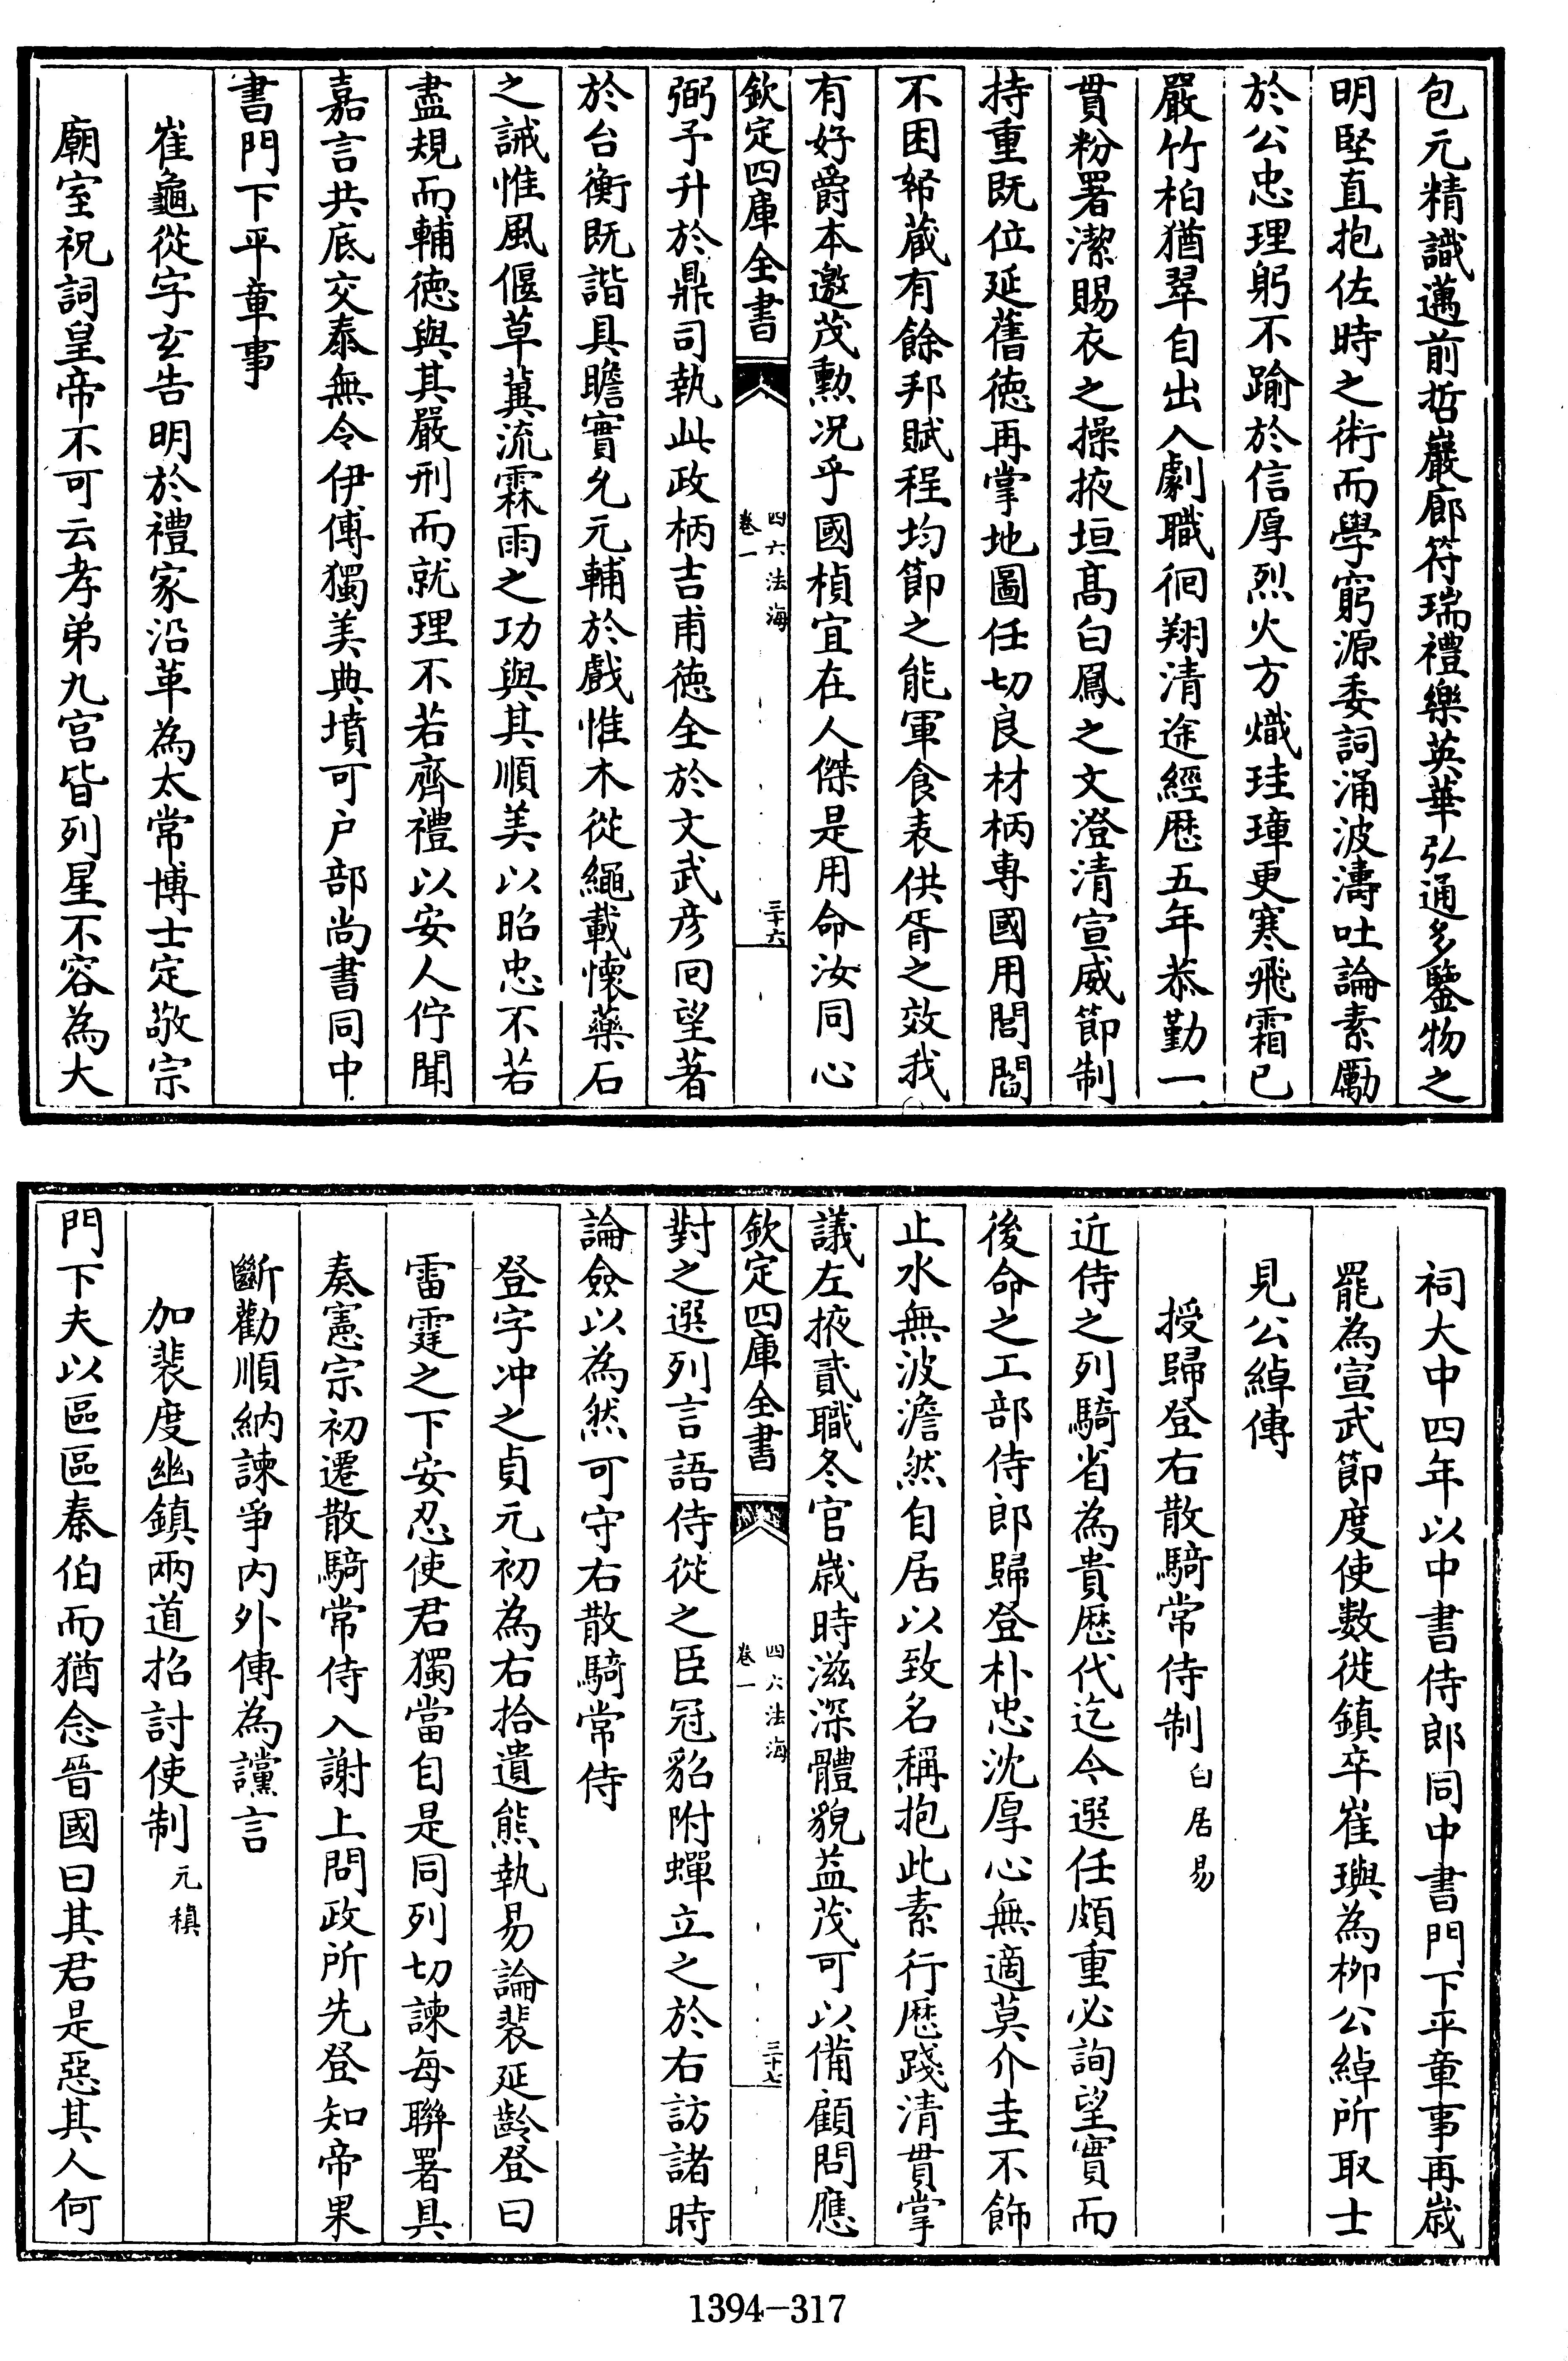 包元精識邁前哲巖廊符瑞禮樂英華弘通多鑒物之
明堅直抱佐時之術而學窮源委詞涌波濤吐論素勵
於公忠理躬不踰於信厚烈火方熾珪璋更寒飛霜已
嚴竹柏猶翠自出入劇職徊翔清途經歴五年恭勤一
貫粉署潔賜衣之操掖垣髙白鳳之文澄清宣威節制
持重既位延舊徳再掌地圖任切良材柄専國用閭閻
不困帑蔵有餘邦賦程均節之能軍食表供胥之效我
有好爵本邀茂勲况乎國楨宜在人傑是用命汝同心
欽定四庫全書
四六法海
卷一
三十六
弼予升於鼎司執此政柄吉甫徳全於文武彦囘望著
於台衡既諧具瞻實允元輔於戲惟木從繩載懐藥石
之誡惟風偃草冀流霖雨之功與其順美以昭忠不若
盡規而輔徳與其嚴刑而就理不若齊禮以安人佇聞
嘉言共底交泰無令伊傅獨美典墳可户部尚書同中
書門下平章事
崔龜從字玄告明於禮家沿革為太常博士定敬宗
廟室祝詞皇帝不可云孝弟九宫皆列星不容為大
祠大中四年以中書侍郎同中書門下平章事再歳
罷為宣武節度使數徙鎮卒崔璵為栁公綽所取士
見公綽傳
授歸登右散騎常侍制 白居易
近侍之列騎省為貴歴代迄今選任頗重必詢望實而
後命之工部侍郎歸登朴忠沈厚心無適莫介圭不飾
止水無波澹然自居以致名稱抱此素行歴踐清貫掌
議左掖貳職冬官歳時滋深體貌益茂可以備顧問應
欽定四庫全書
四六法海
卷一
三十七
對之選列言語侍從之臣冠貂附蟬立之於右訪諸時
論僉以為然可守右散騎常侍
登字冲之貞元初為右拾遺熊執易論裴延齡登曰
雷霆之下安忍使君獨當自是同列切諫每聯署具
奏憲宗初遷散騎常侍入謝上問政所先登知帝果
斷勸順納諫爭内外傳為讜言
加裴度幽鎮兩道招討使制 元稹
門下夫以區區秦伯而猶念晉國曰其君是惡其人何
1394—317